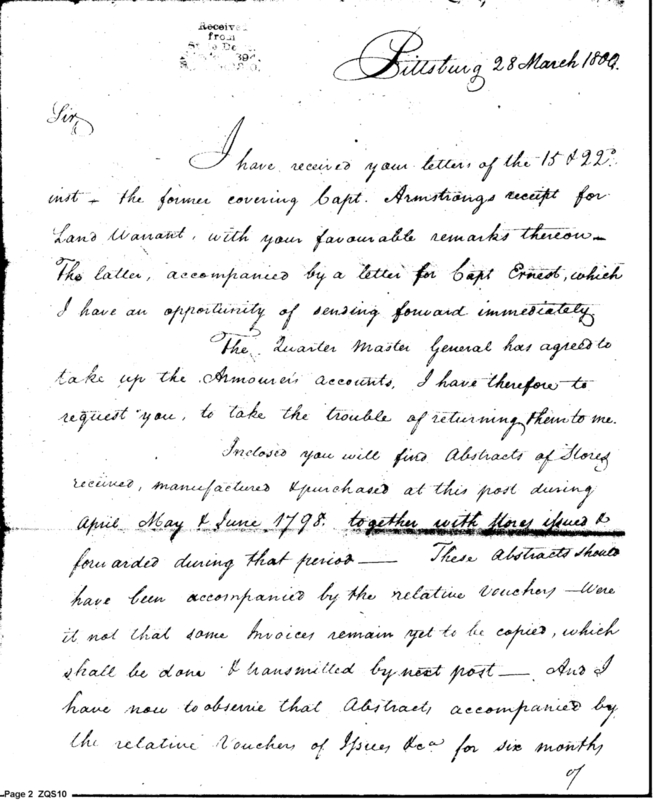 Received
from
Pittsburg 28 March 1800.
Sir,
I have received your letters of the 15 & 22d
inst - the former covering Capt. Armstrongs receipt for
Land Warrant, with your favourable remarks thereon -
The latter, accompanied by a letter for Capt Ernest, which
I have an opportunity of sending forward immediately
The Quarter Master General has agreed to
take up the Armourers accounts, I have therefore to
request you, to take the trouble of returning them to me.
Inclosed you will find Abstracts of Stores
received, manufactured & purchased at this post during
April May & June 1798. together with Stores issued &
forwarded during that period — These Abstracts should
have been accompanied by the relative Vouchers - Were
it not that some Invoices remain yet to be copied, which
shall be done & transmitted by next post — And I
have now to observe that Abstracts accompanied by
the relative Vouchers of Issues &ca for six months
of
Page 2 ZQS10